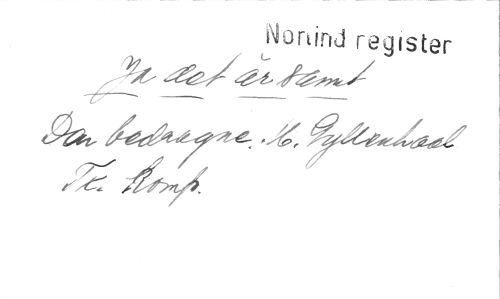 Nomind register
Ja det är samt
Den bedragne. M. Gyllenhaal
Tr. Komp.